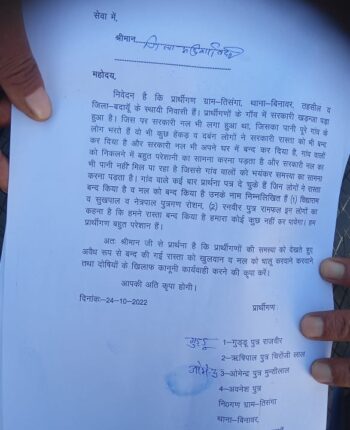 सेवा में,
श्रीमान जिला
महोदय,
निवेदन है कि प्रार्थीगण ग्राम-तिसंगा, थाना-बिनावर, तहसील व
जिला-बदायूँ के स्थायी निवासी हैं। प्रार्थीगणों के गाँव में सरकारी खड़न्जा पड़ा
हुआ है। जिस पर सरकारी नल भी लगा हुआ था, जिसका पानी पूरे गांव के
लोग भरते हैं वो भी कुछ हेंकड़ व दबंग लोगों ने सरकारी रास्ता को भी बन्द
कर दिया है और सरकारी नल भी अपने घर में बन्द कर दिया है, गांव वालों
को निकलने में बहुत परेशानी का सामना करना पड़ता है और सरकारी नल का
भी पानी नहीं मिल पा रहा है जिससे गांव वालों को भयंकर समस्या का सामना
करना पड़ता है। गांव वाले कई बार प्रार्थना पत्र दे चुके हैं जिन लोगों ने रास्ता
बन्द किया है व नल को बन्द किया है उनके नाम निम्नलिखित हैं (1) विद्याराम
व सुखपाल व नेत्रपाल पुत्रगण रोशन, (2) रनवीर पुत्र रामफल इन लोगों का
कहना है कि हमने रास्ता बन्द किया है हमारा कोई कुछ नहीं कर पायेगा। हम
प्रार्थीगण बहुत परेशान हैं।
अतः श्रीमान जी से प्रार्थना है कि प्रार्थीगणों की समस्या को देखते हुए
अवैध रूप से बन्द की गई रास्ता को खुलवान व नल को चालू करवाने करवाने
तथा दोषियों के खिलाफ कानूनी कार्यवाही करने की कृपा करें।
आपकी अति कृपा होगी।
दिनांकः-24-10-2022
प्रार्थीगण
गुड्डू 1-गुड्डू पुत्र राजवीर
2-ऋषिपाल पुत्र चिरोंजी लाल
3-ओमेन्द्र पुत्र मुन्शीलाल
4-अवनेश पुत्र
नि0गण ग्राम-तिसंगा
थाना-बिनावर,